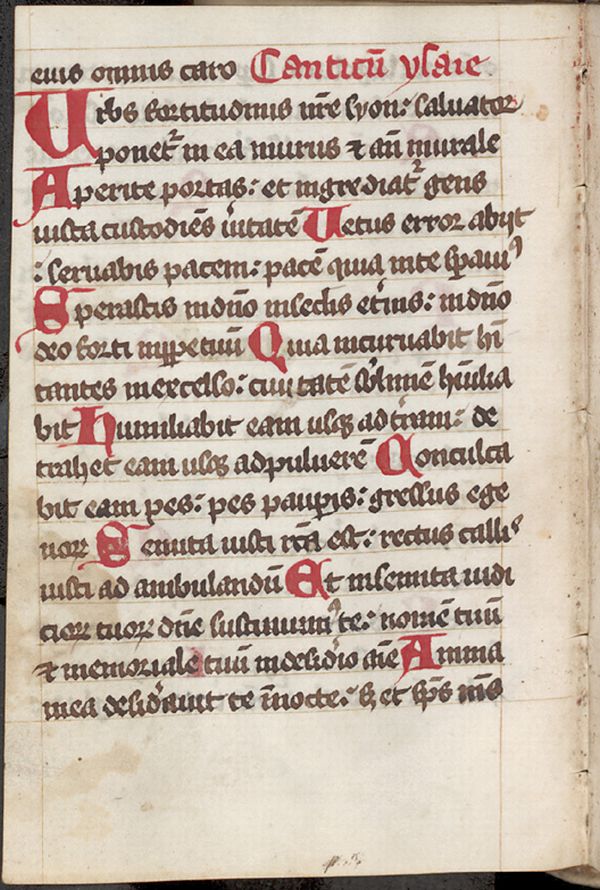 eius omnis caro Canticū ysaie
Urbs fortitudinis nr̄e syon: saluator
ponet᷑ in ea murus ⁊ an̄ murale
Aperite portas: et ingrediat᷑ gens
iusta custodiēs ūitatē Uetus error abijt
: seruabis pacem: pacē quia inte sperauimꝰ
Sperastis indn̄o inseclis et̄nis: indn̄o
deo forti inꝑpetuū Quia incuruabit hī
tantes inexcelso: ciuitatē sb̓limē hūilia
bit Humiliabit eam usqꝫ ad tr̄am: de
trahet eam usqꝫ adpuluerē Conculca
bit eam pes: pes pauꝑis: gressus ege
noꝝ Semita iusti rc̄a est: rectus callis
iusti ad ambulandū Et insemita iudi
cioꝝ tuoꝝ dn̄e sustinuimꝰ te: nomē tuū
⁊ memoriale tuū indesid̓io aīe Anima
mea desid̓auit te īnocte: sꝫ et sp̄s ms̄